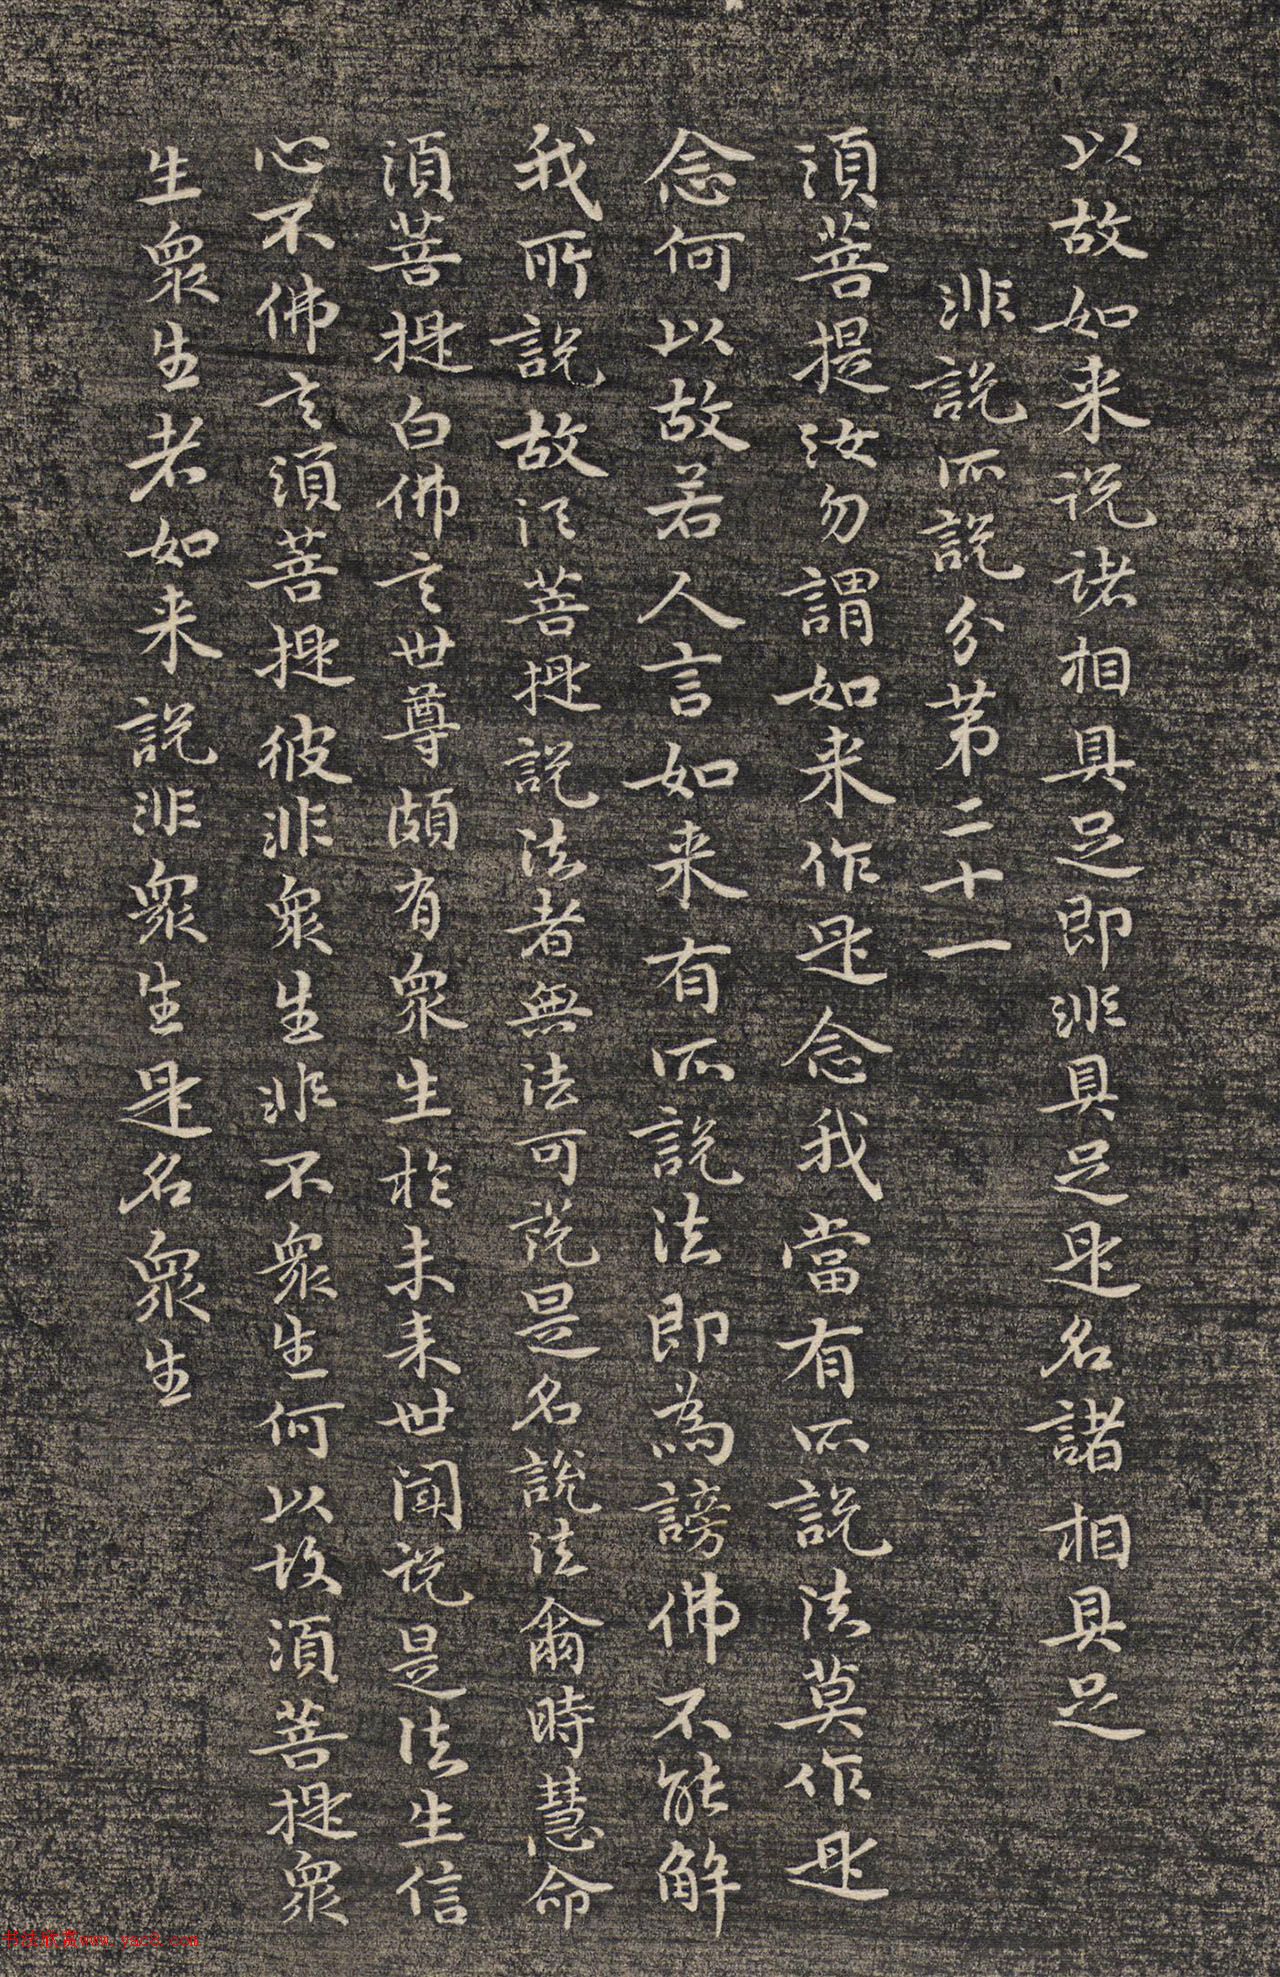 以故如来说诸相具足即非具足是名諸相具足
非說所說分第二十一
須菩提汝勿謂如来作是念我當有所說法莫作是
念何以故若人言如来有所說法即為謗佛不能解
我所說故須菩提說法者無法可説是名說法爾時慧命
須菩提白佛言世尊頗有衆生於未来世闻说是法生信
心不佛言須菩提彼非衆生非不衆生何以故須菩提衆
生衆生者如来說非衆生是名衆生
书法欣赏www.yac8.com